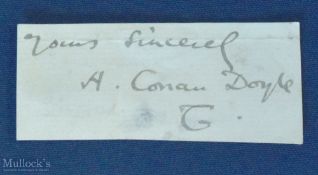 Yours sincerely
A. Conan Doyle
T.
Mullock's